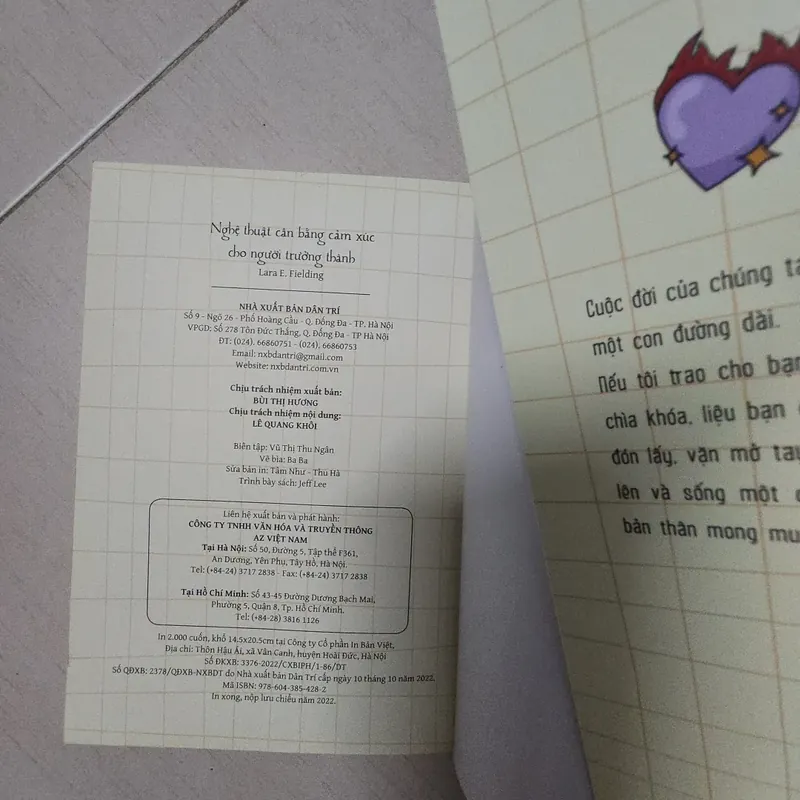 Nghệ thuật cân bằng cảm xúc
cho người trưởng thành
Lara E. Fielding
NHÀ XUẤT BẢN DÂN TRÍ
Số 9 - Ngõ 26 - Phố Hoàng Cầu - Q. Đống Đa - TP. Hà Nội
VPGD: Số 278 Tôn Đức Thắng, Q. Đống Đa - TP Hà Nội
ĐT: (024). 66860751 - (024). 66860753
Email: nxbdantri@gmail.com
Website: nxbdantri.com.vn
Chịu trách nhiệm xuất bản:
BÙI THỊ HƯƠNG
Chịu trách nhiệm nội dung:
LÊ QUANG KHÔI
Biên tập: Vũ Thị Thu Ngân
Vẽ bìa: Ba Ba
Sửa bản in: Tâm Như - Thu Hà
Trình bày sách: Jeff Lee
Liên hệ xuất bản và phát hành:
CÔNG TY TNHH VĂN HÓA VÀ TRUYỀN THÔNG
AZ VIỆT NAM
Tại Hà Nội: Số 50, Đường 5, Tập thể F361,
An Dương, Yên Phụ, Tây Hồ, Hà Nội.
Tel: (+84-24) 3717 2838 - Fax: (+84-24) 3717 2838
Tại Hồ Chí Minh: Số 43-45 Đường Dương Bạch Mai,
Phường 5, Quận 8, Tp. Hồ Chí Minh.
Tel: (+84-28) 3816 1126
In 2.000 cuốn, khổ 14.5x20.5cm tại Công ty Cổ phần In Bản Việt.
Địa chỉ: Thôn Hậu Ái, xã Vân Canh, huyện Hoài Đức, Hà Nội
Số ĐKXB: 3376-2022/CXBIPH/1-86/DT
Số QĐXB: 2378/QĐXB-NXBDT do Nhà xuất bản Dân Trí cấp ngày 10 tháng 10 năm 2022.
Mã ISBN: 978-604-385-428-2
In xong, nộp lưu chiểu năm 2022.
Cuộc đời của chúng ta
một con đường dài.
Nếu tôi trao cho bạn
chìa khóa, liệu bạn
đón lấy, vặn mở
lên và sống một
bản thân mong